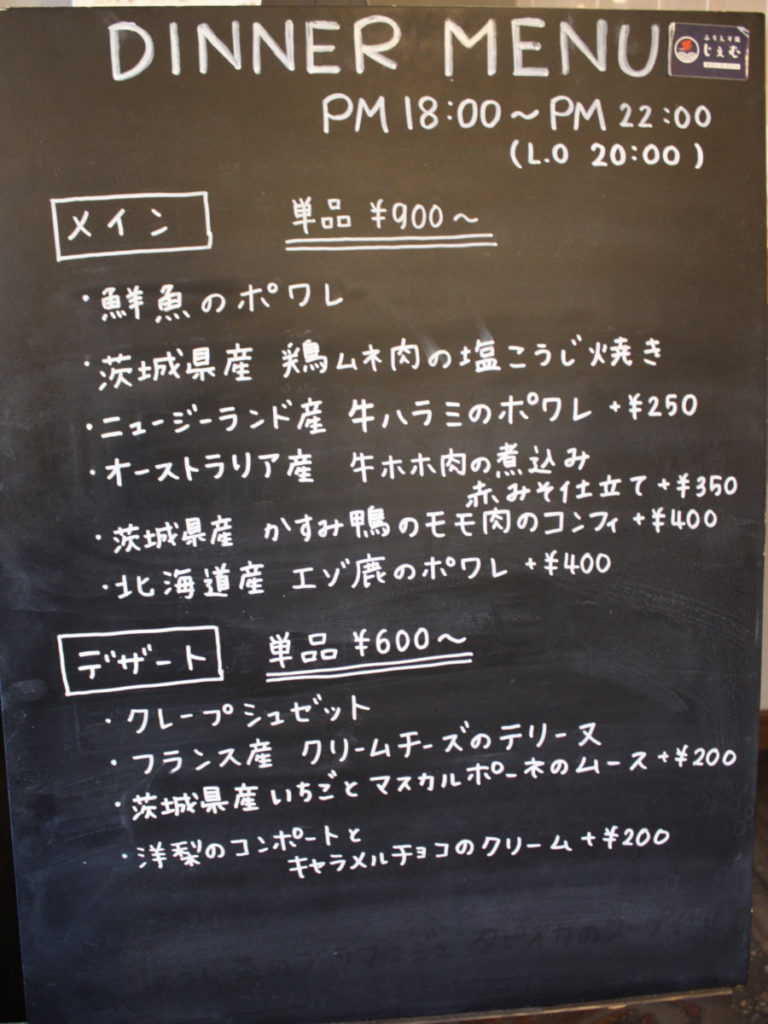 DINNER MENU
じぇむ
PM 18:00～PM 22:00
(L.O 20:00)
メイン 単品 ¥900～
・鮮魚のポワレ
・茨城県産 鶏ムネ肉の塩こうじ焼き
・ニュージーランド産 牛ハラミのポワレ +¥250
・オーストラリア産 牛ホホ肉の煮込み
赤みそ仕立て+¥350
・茨城県産 かすみ鴨のモモ肉のコンフィ +¥400
・北海道産 エゾ鹿のポワレ +¥400
デザート 単品 ¥600～
・クレープシュゼット
・フランス産 クリームチーズのテリーヌ
・茨城県産いちごとマスカルポーネのムース+¥200
・洋梨のコンポートと
キャラメルチョコのクリーム+¥200